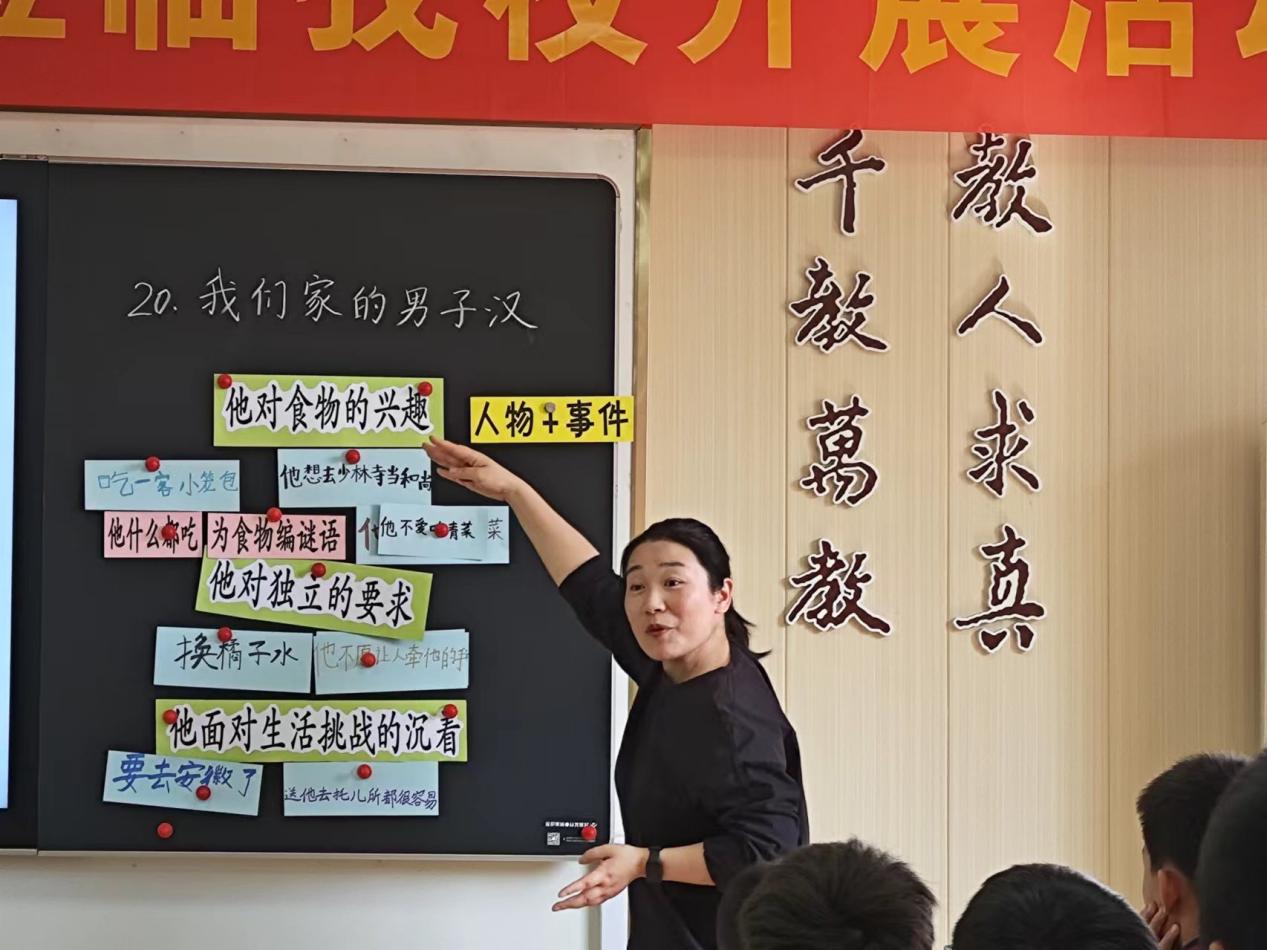 临我校开展活
20. 我们家的男子汉
他对食物的兴趣
人物+事件
吃一客小笼包
他想去少林寺当和尚
他什么都吃
为食物编谜语
他不爱吃青菜
菜
他对独立的要求
换橘子水
他不愿让人牵他的手
他面对生活挑战的沉着
要去安徽了
送他去托儿所都很容易
千教萬教
教人求真